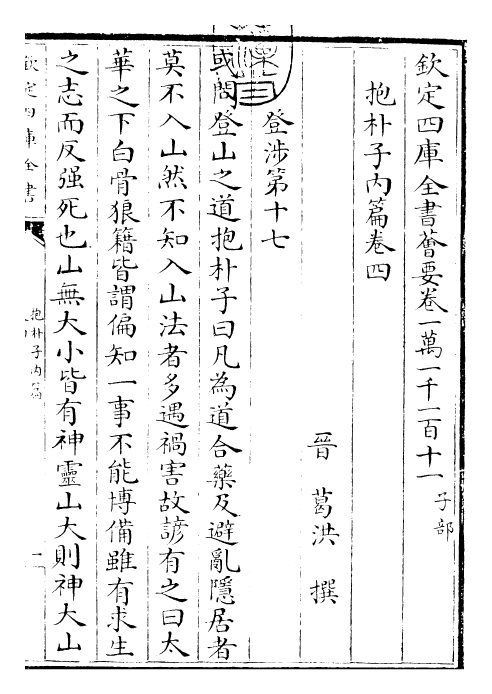 欽定四庫全書薈要卷一萬一千一百十一 子部
抱朴子內篇卷四
晉 葛洪 撰
登涉第十七
或問登山之道抱朴子曰凡為道合藥及避亂隱居者
莫不入山然不知入山法者多遇禍害故諺有之曰太
華之下白骨狼籍皆謂偏知一事不能博備雖有求生
之志而反强死也山無大小皆有神靈山大則神大山
欽定四庫全書
抱朴子內篇
一